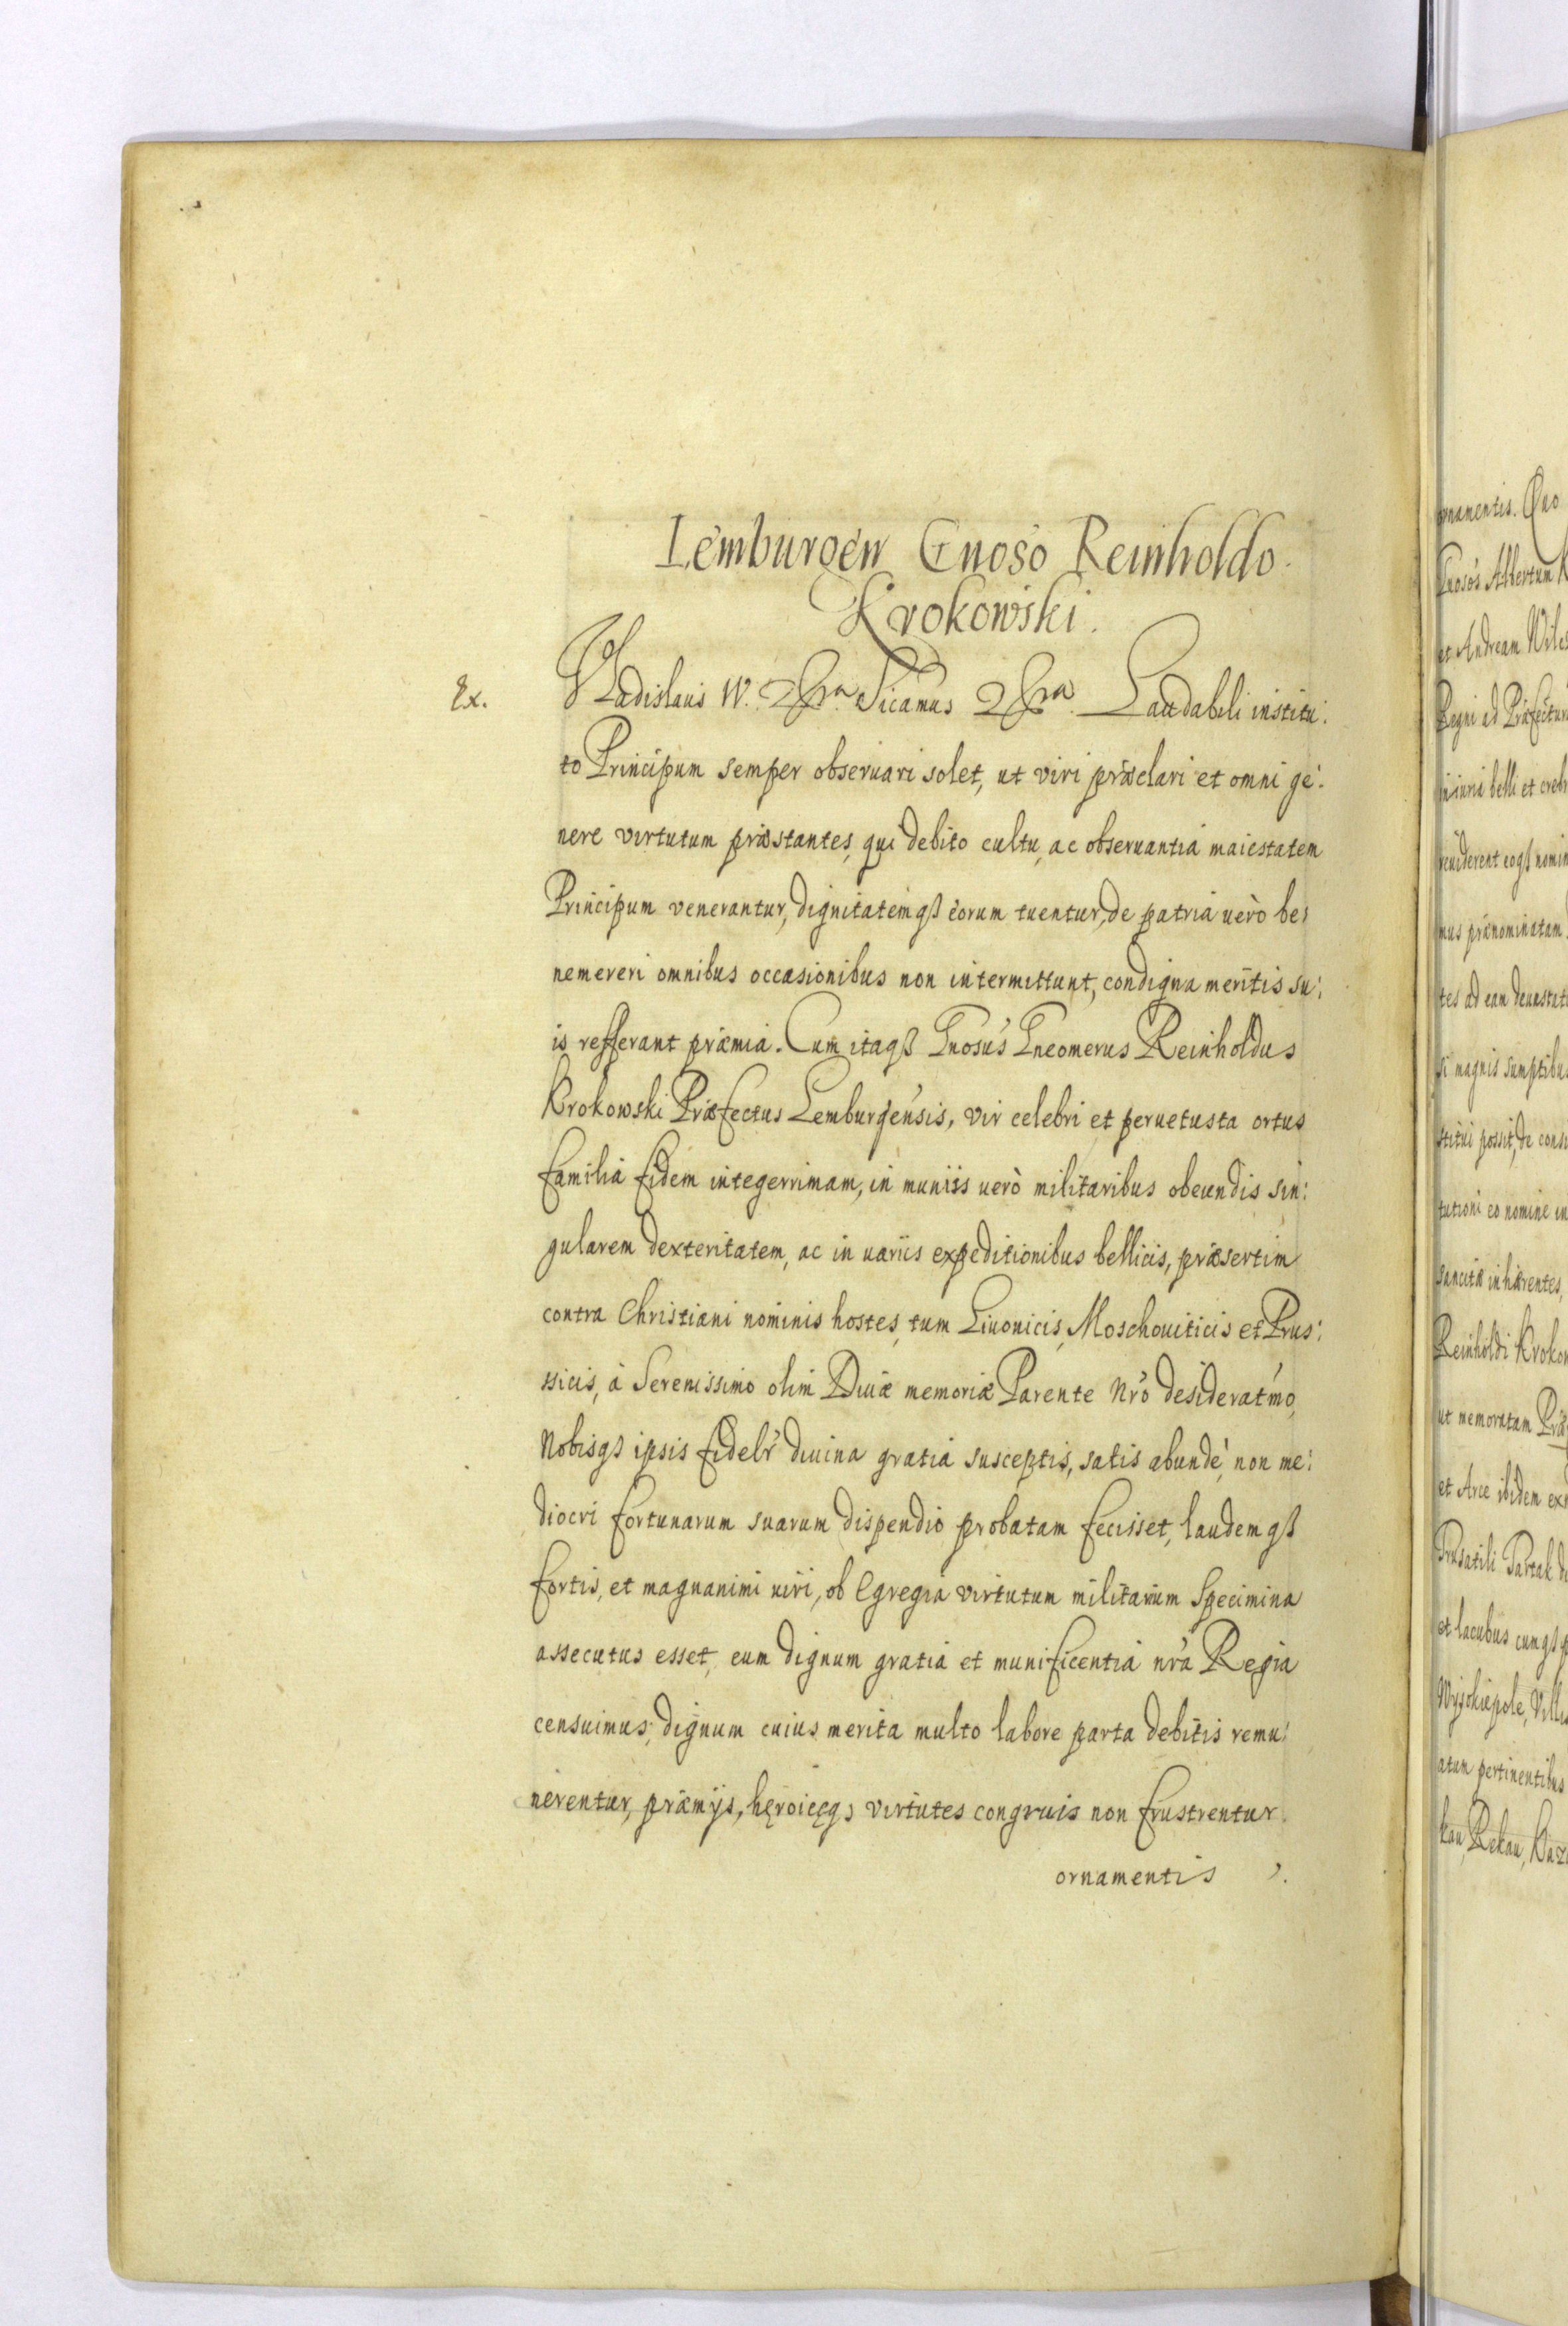 Lemburgen Gnoso Reinholdo
Krokowski.
Ex.
Vladislaus IV. &ra Sicamus &ra. Laudabili institu:
to Principum semper obseruari solet, ut viri præclari et omni ge:
nere virtutum præstantes, qui debito cultu, ac obseruantia maiestatem
Principum venerantur, dignitatemqß eorum tuentur, de patria uerò be:
nemereri omnibus occasionibus non intermittunt, condigna meritis su:
is refferant præmia. Cum itaqß Gnosus Gneomerus Reinholdus
Krokowski Præfectus Lemburgensis, vir celebri et peruetusta ortus
familiâ fidem integerrimam, in muniis uerò militaribus obeundis sin:
gularem dexteritatem, ac in uariis expeditionibus bellicis, præsertim
contra Christiani nominis hostes, tum Liuonicis, Moschouiticis et Prus:
sicis, à Serenissimo olim Diuæ memoriæ Parente Nro desideratmo,
Nobisqß ipsis fidelr diuina gratia susceptis, satis abundè, non me:
diocri fortunarum suarum dispendio probatam fecisset, laudemqß
fortis, et magnanimi uiri, ob egregia virtutum militarium specimina
assecutus esset, eum dignum gratia et munificentia nra Regia
censuimus, dignum cuius merita multo labore parta debitis remu:
nerentur, præmijs, hęroicęqs virtutes congruis non frustrentur
ornamentis
ornamentis. Quo
Gnosos Albertum K
et Andream Wiles
Regni ad Præfectur
iniuria belli et creb
reuiderent eoqß nomin
mus prænominatam
tes ad eam deuastat
si magnis sumptibu
stitui possit, de cons
tutioni eo nomine in
sancitæ inhærentes,
Reinholdi Krokow
ut memoratam Præf
et Arce ibidem ex
Tartak d
et lacubus cunqß p
Wysokiepole, Villis
atum pertinentibus
kau, Rekau, Kaz